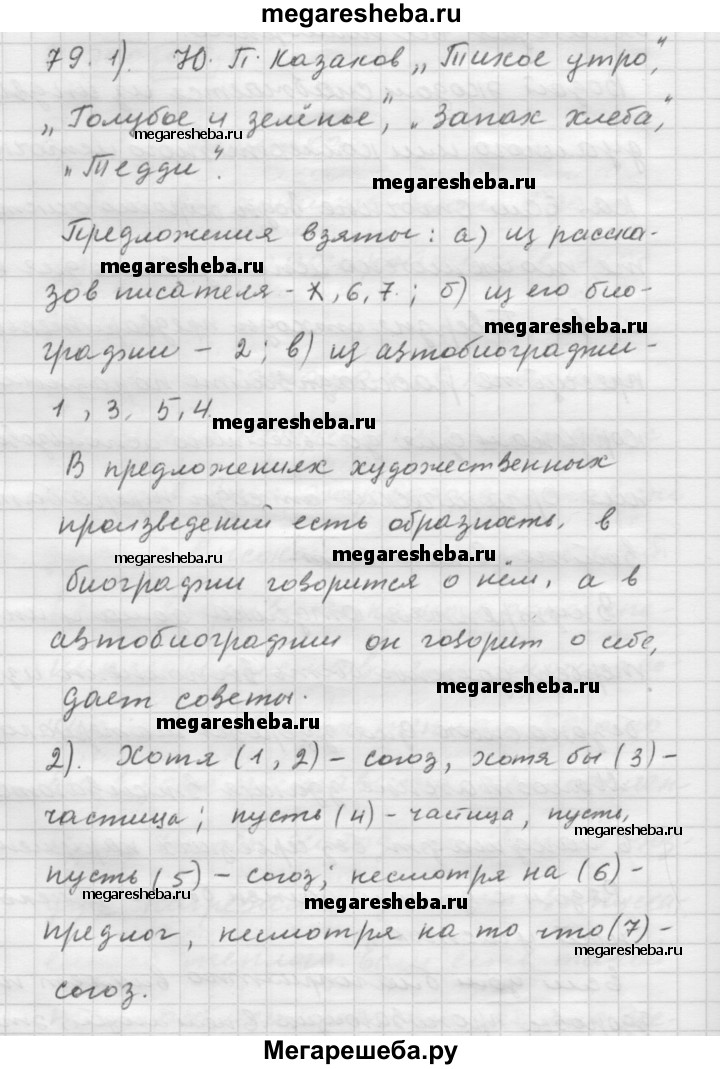 megaresheba.ru
79. 1). Ю. П. Казаков „Тихое утро",
„Голубое и зелёное", „Запах хлеба",
megaresheba.ru
„Тедди".
megaresheba.ru
Предложения взяты: а) из расска-
megaresheba.ru
зов писателя - X, 6, 7.; б) из его био-
megaresheba.ru
графии - 2; в) из автобиографии -
1, 3, 5, 4.
megaresheba.ru
В предложениях художественных
произведений есть образность, в
megaresheba.ru megaresheba.ru
биографии говорится о нём, а в
автобиографии он говорит о себе,
megaresheba.ru
даёт советы.
megaresheba.ru
2). Хотя (1, 2) - союз, хотя бы (3) -
частица; пусть (4) - частица, пусть,
megaresheba.ru
пусть (5) - союз; несмотря на (6) -
megaresheba.ru megaresheba.ru
предлог, несмотря на то что (7) -
megaresheba.ru
союз.
Мегарешеба.ру